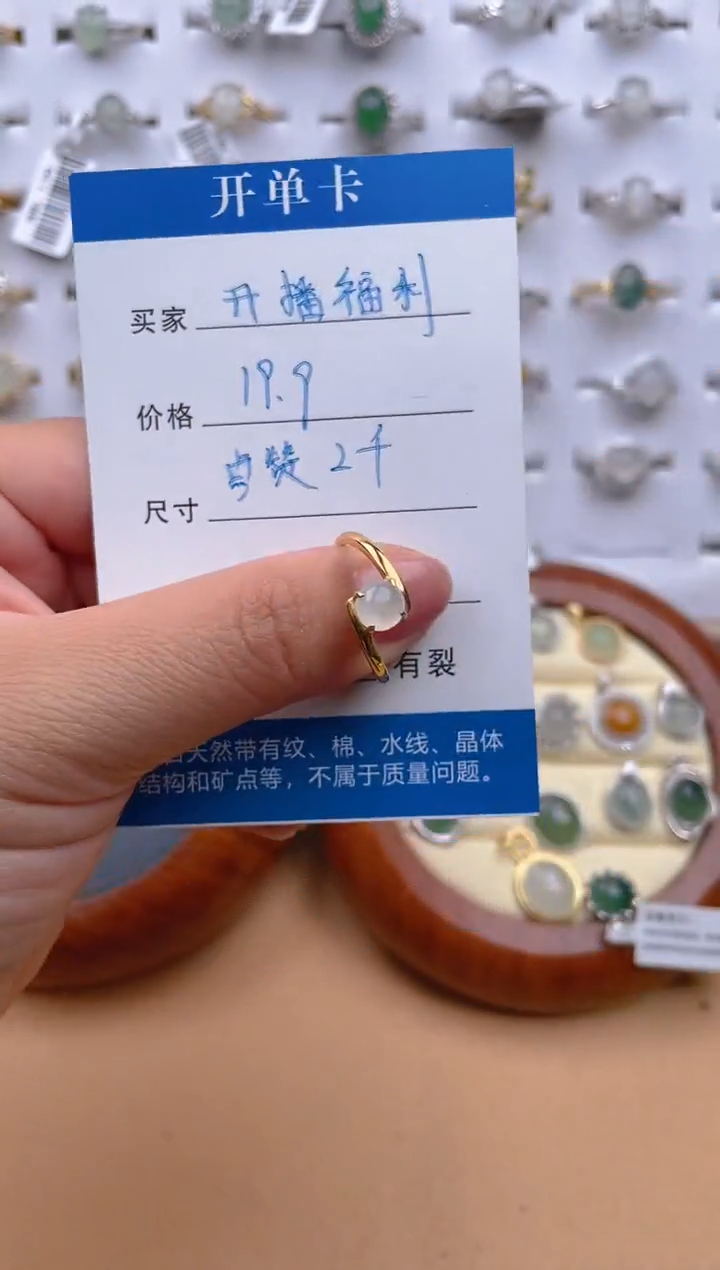 开单卡
买家 开播福利
价格 19.9
点赞2千
尺寸
有裂
天然带有纹、棉、水线、晶体
结构和矿点等，不属于质量问题。